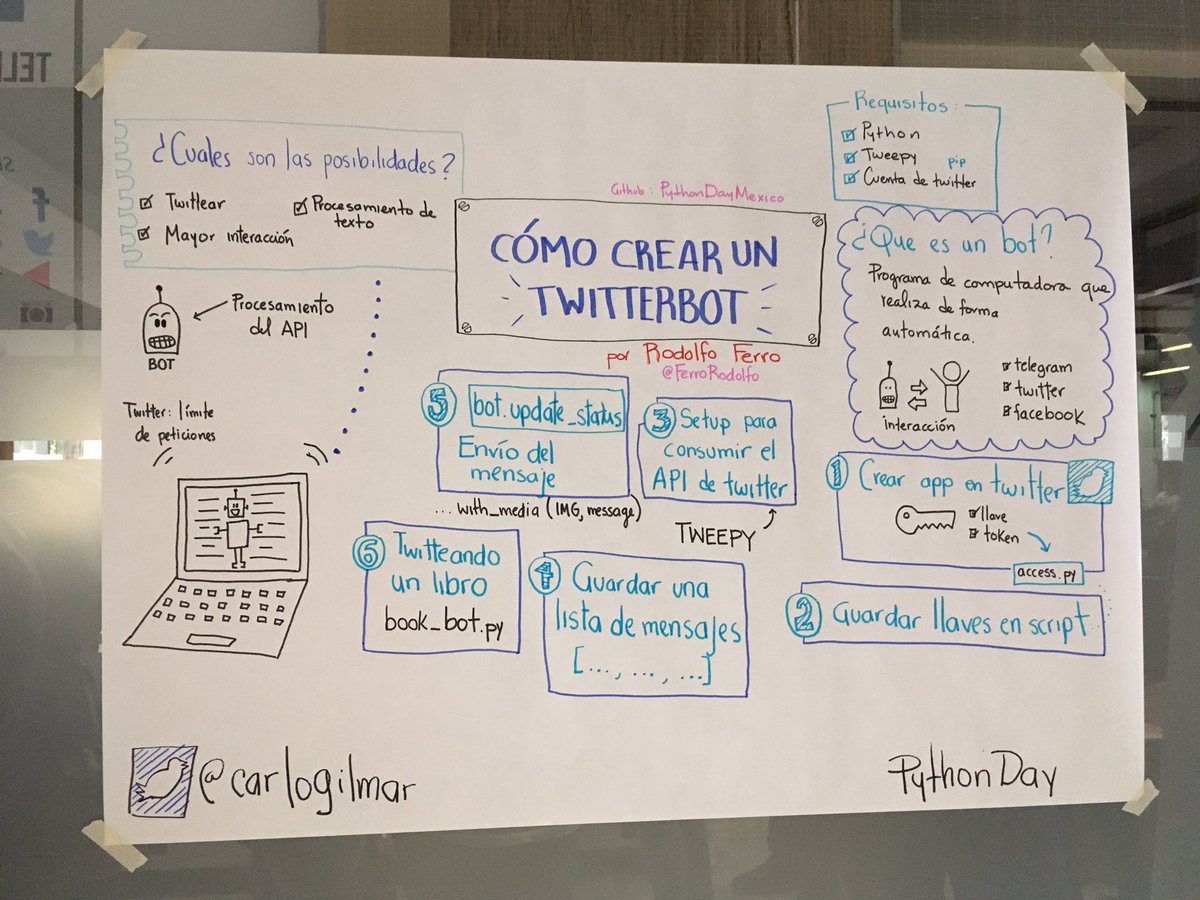 TELE
¿Cuales son las posibilidades?
Twittear
Mayor interacción
Procesamiento de
texto
Github: PythonDayMexico
CÓMO CREAR UN
TWITTERBOT
por Rodolfo Ferro
@FerroRodolfo
Requisitos:
Python
Tweepy pip
Cuenta de twitter
¿Que es un bot?
Programa de computadora que
realiza de forma
automática.
interacción
telegram
twitter
facebook
Procesamiento
del API
BOT
Twitter: límite
de peticiones
1 Crear app en twitter
llave
token
access.py
2 Guardar llaves en script
3 Setup para
consumir el
API de twitter
TWEEPY
4 Guardar una
lista de mensajes
[..., ..., ...]
5 bot.update_status
Envío del
mensaje
... with_media (IMG, message)
6 Twitteando
un libro
book_bot.py
@carlogilmar
PythonDay